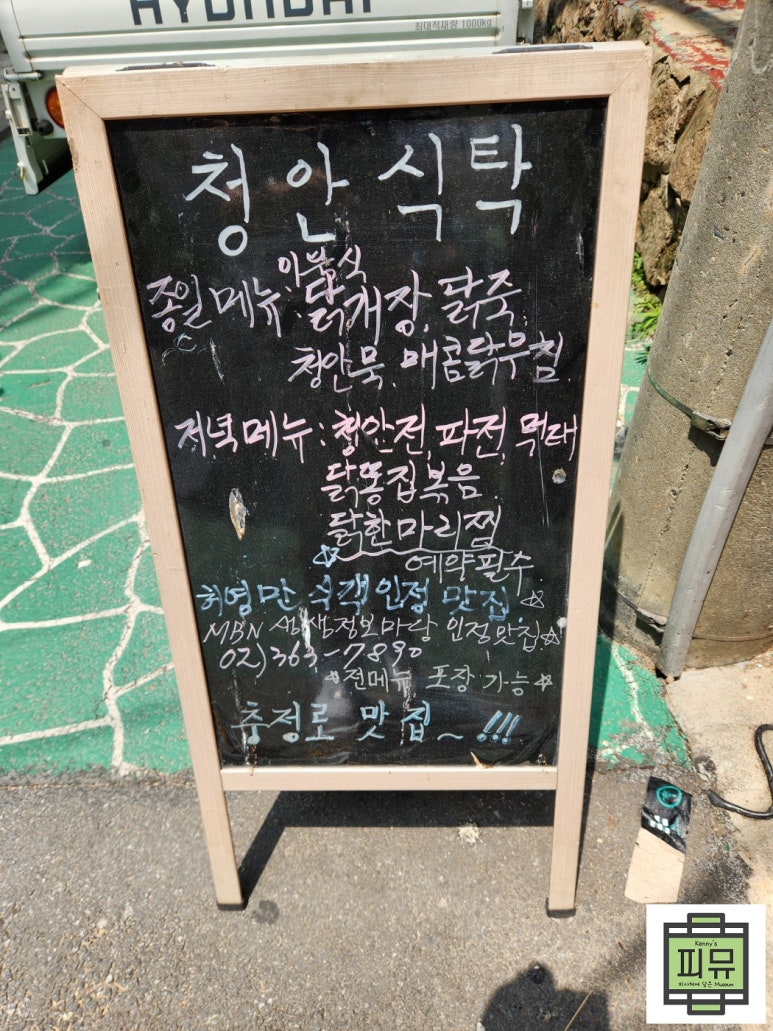 HYUNDAI
최대적재량 1000kg
청안식탁
이북식
종일메뉴: 닭개장, 닭죽
청안묵, 매콤닭무침
저녁메뉴: 청안전, 파전, 먹태
닭똥집볶음
닭한마리찜
☆예약필수
허영만 식객 인정 맛집☆
MBN 생생정보마당 인정맛집☆
02)363-7890
☆전메뉴 포장 가능☆
충정로 맛집~!!!
Kenny's
피뮤
Museum